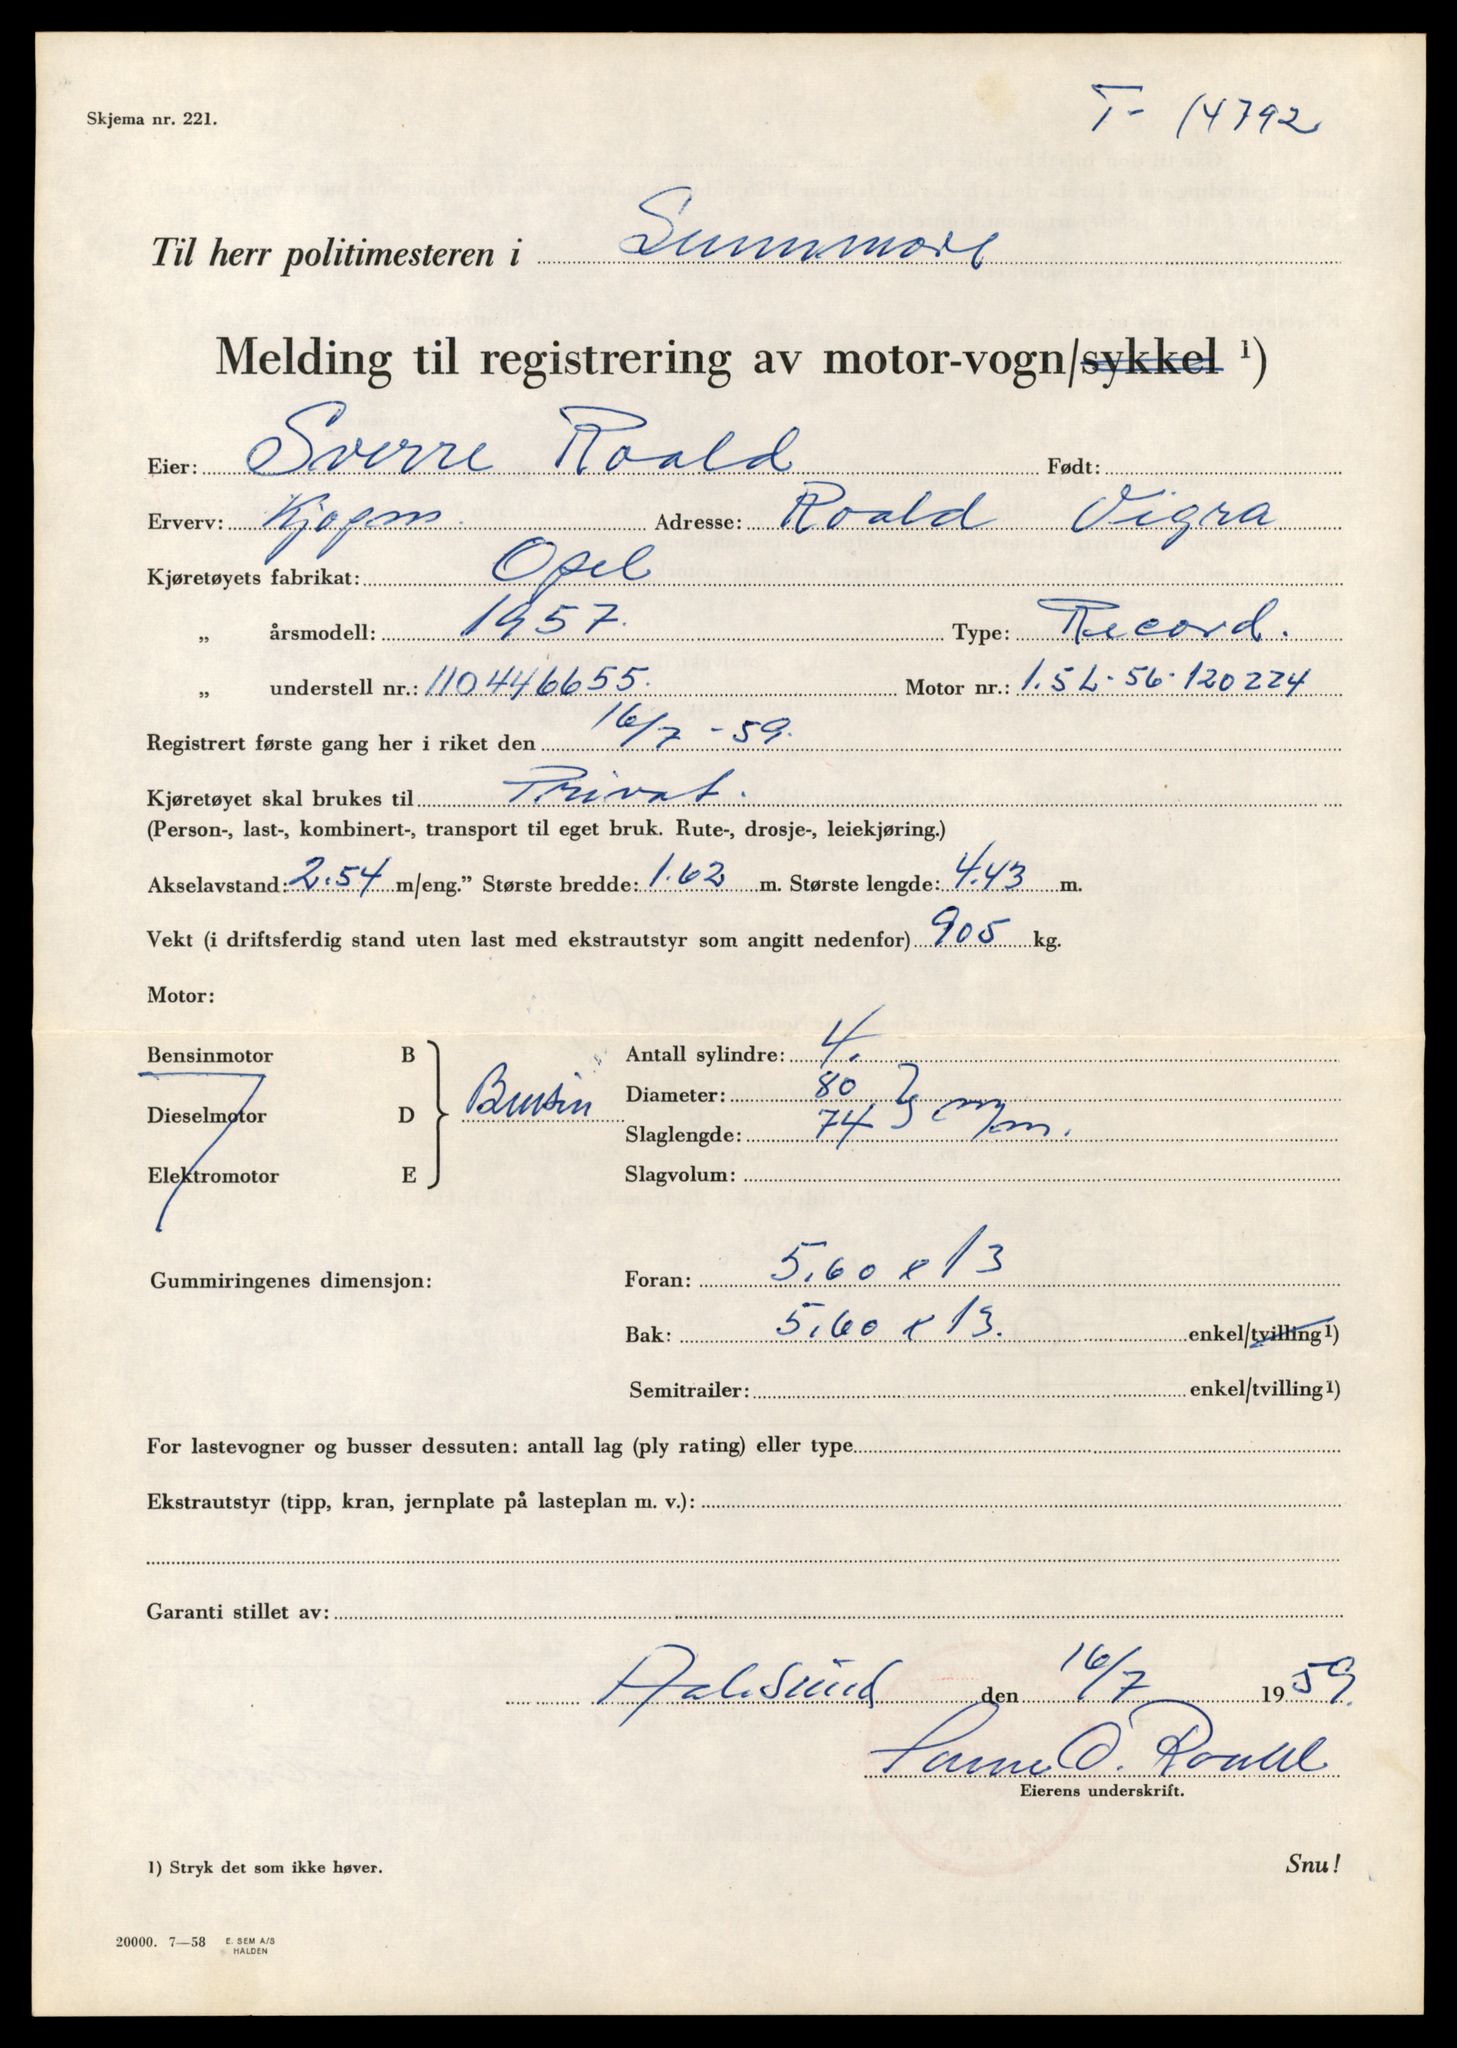 Skjema nr. 221.
T- 14792
Til herr politimesteren i Sunnmøre
Melding til registrering av motor-vogn/sykkel 1)
Eier: Sverre Roald Født:
Erverv: Kjøpm. Adresse: Roald Vigra
Kjøretøyets fabrikat: Opel
„ årsmodell: 1957. Type: Record.
„ understell nr.: 110446655. Motor nr.: 1.5L-56-120224
Registrert første gang her i riket den 16/7 -59.
Kjøretøyet skal brukes til Privat.
(Person-, last-, kombinert-, transport til eget bruk. Rute-, drosje-, leiekjøring.)
Akselavstand: 2.54 m/eng.” Største bredde: 1.62 m. Største lengde: 4.43 m.
Vekt (i driftsferdig stand uten last med ekstrautstyr som angitt nedenfor) 905 kg.
Motor:
Bensinmotor B
Dieselmotor D
Elektromotor E
Bensin
Antall sylindre: 4.
Diameter: 80
Slaglengde: 74 } m/m.
Slagvolum:
Gummiringenes dimensjon: Foran: 5.60 x 13
Bak: 5.60 x 13. enkel/tvilling 1)
Semitrailer: enkel/tvilling 1)
For lastevogner og busser dessuten: antall lag (ply rating) eller type
Ekstrautstyr (tipp, kran, jernplate på lasteplan m. v.):
Garanti stillet av:
Aalesund den 16/7 1959.
Sverre O. Roald
Eierens underskrift.
1) Stryk det som ikke høver.
Snu!
20000. 7—58 E. SEM A/S
HALDEN